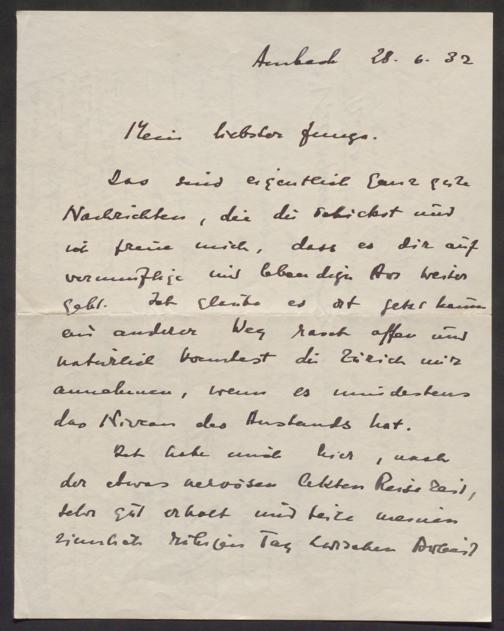 Ambach 28. 6. 32
Mein liebster Junge.
Das sind eigentlich ganz gute
Nachrichten, die du schickst und
ich freue mich, dass es dir auf
vernünftige und lebendige Art weiter
geht. Ich glaube es ist jetzt kaum
ein anderer Weg rasch offen und
natürlich könntest du Zürich nur
annehmen, wenn es mindestens
das Niveau des Anstands hat.
Ich habe mich hier, nach
der etwas nervösen letzten Reisezeit,
sehr gut erholt und teile meinen
ziemlich ruhigen Tag zwischen Arbeit